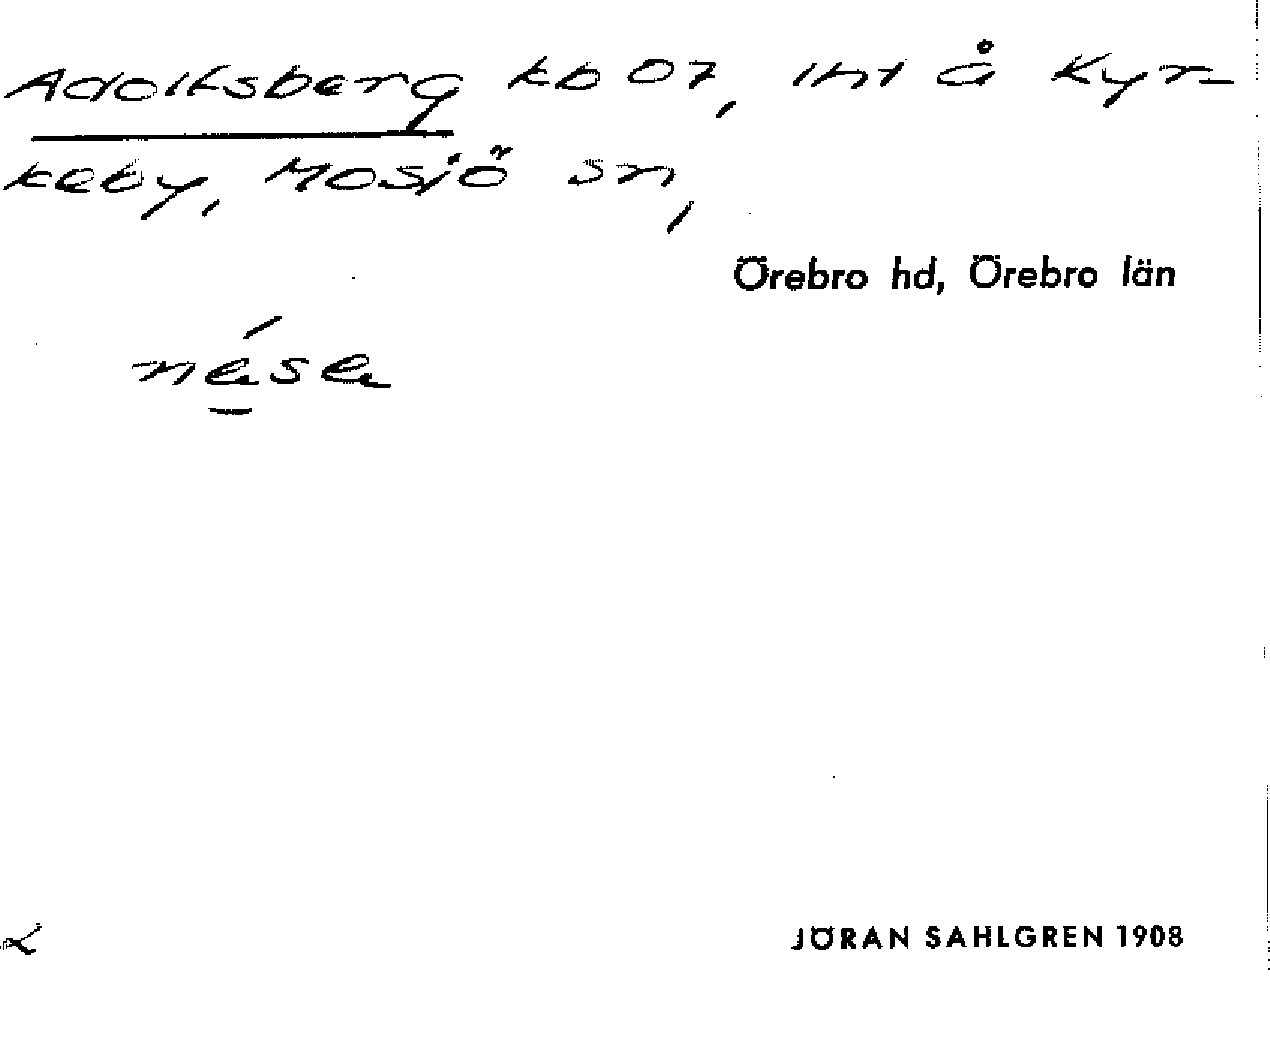 Adolfsberg kb 07, int å Kyr-
keby, Mosjö sn,
Örebro hd, Örebro län
JÖRAN SAHLGREN 1908